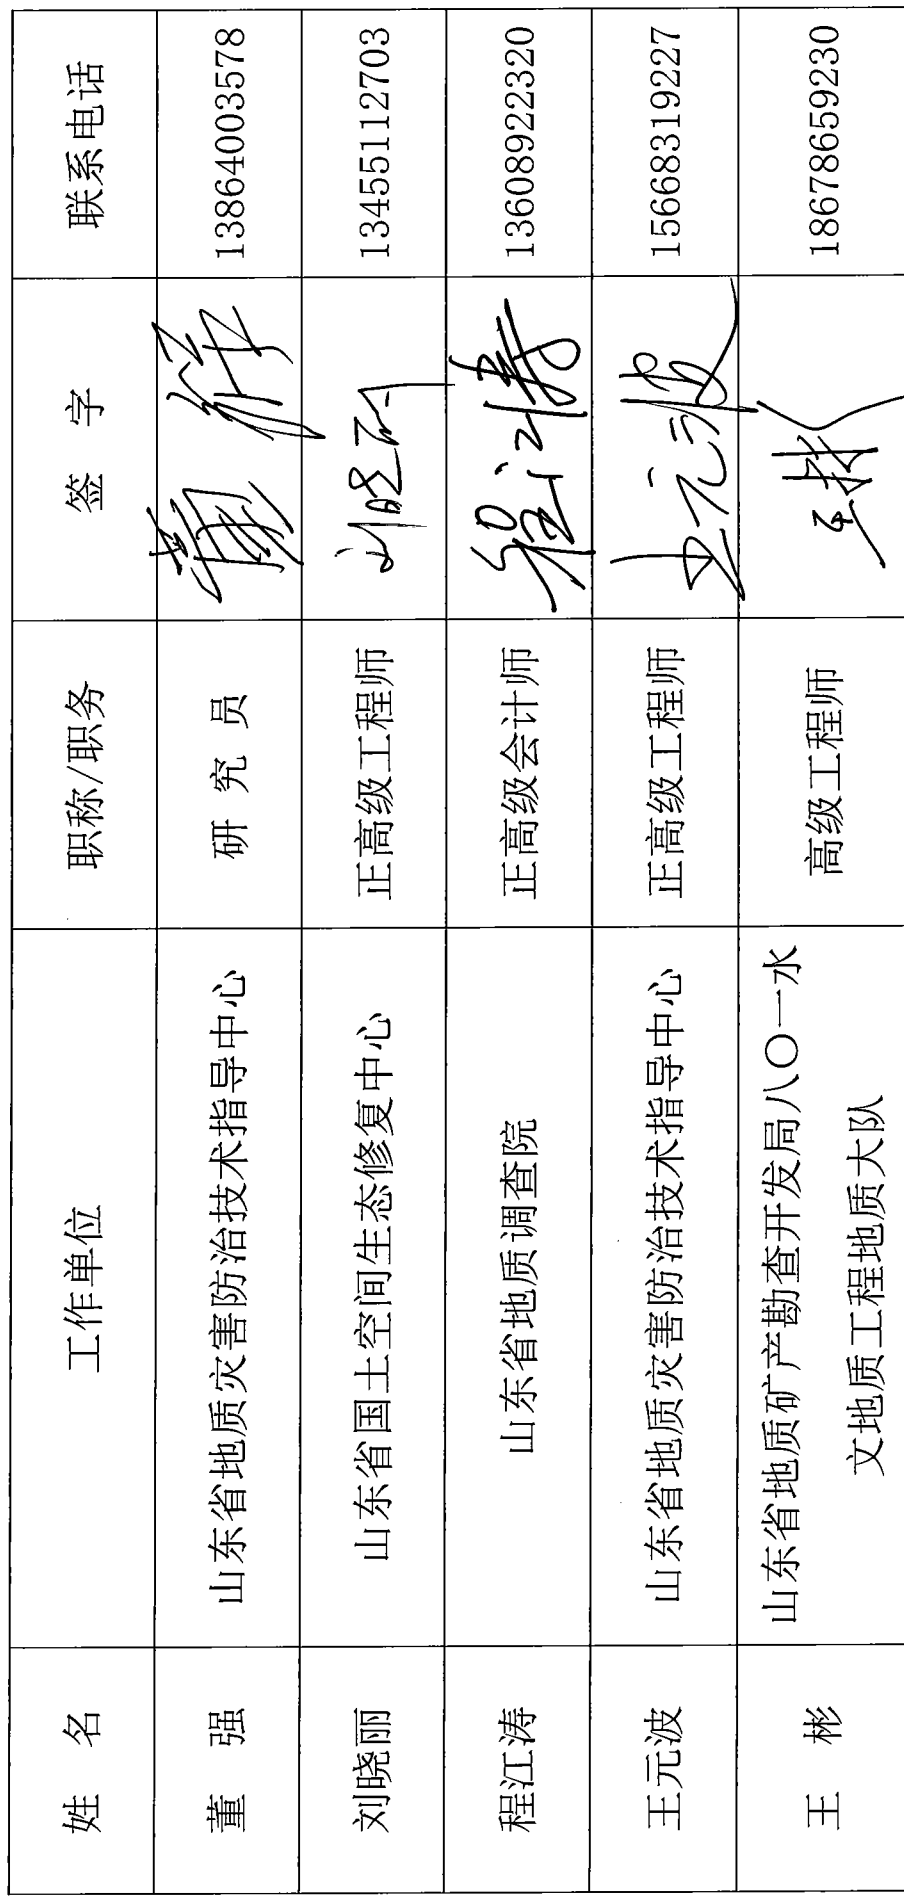 姓 名 工作单位 职称/职务 签 字 联系电话
董 强 山东省地质灾害防治技术指导中心 研究员 13864003578
刘晓丽 山东省国土空间生态修复中心 正高级工程师 刘晓丽 13455112703
程江涛 山东省地质调查院 正高级会计师 程江涛 13608922320
王元波 山东省地质灾害防治技术指导中心 正高级工程师 王元波 15668319227
王 彬 山东省地质矿产勘查开发局八〇一水 高级工程师 王彬 18678659230
文地质工程地质大队